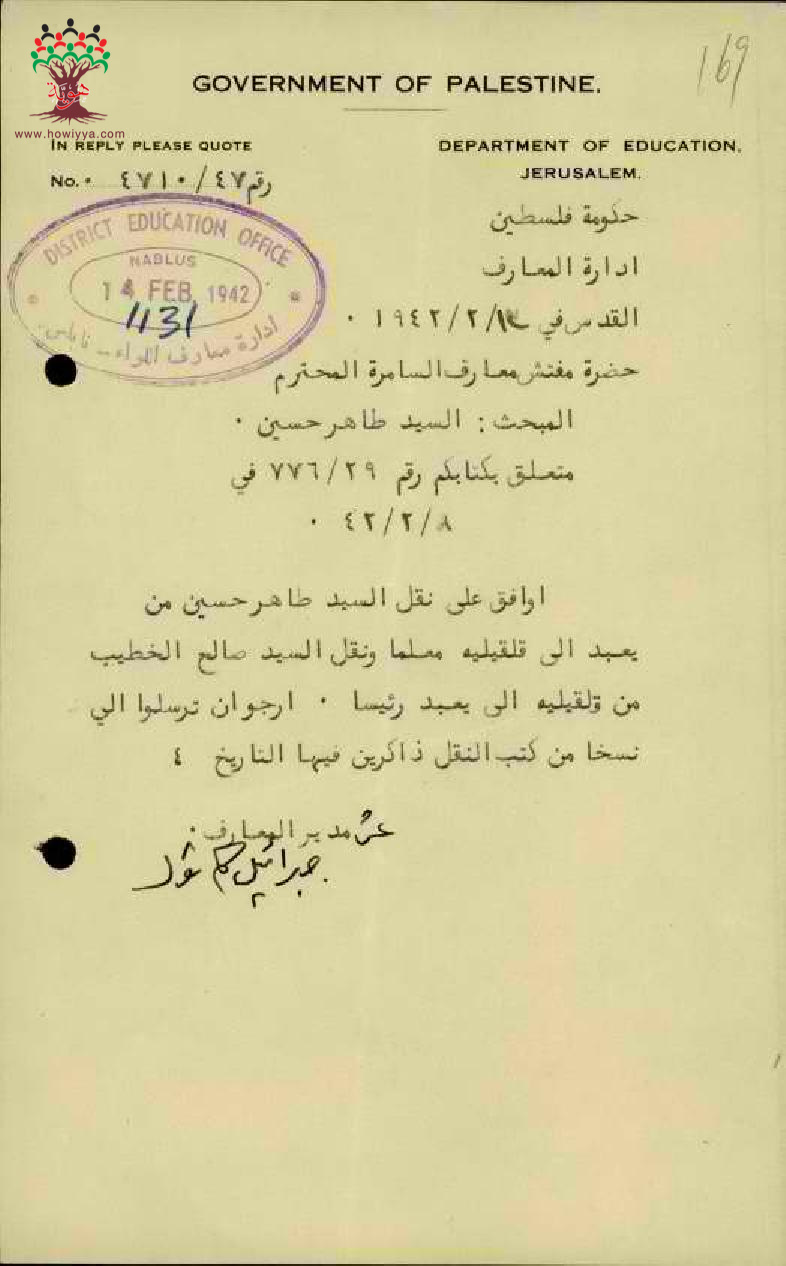 169
GOVERNMENT OF PALESTINE.
www.howiyya.com
IN REPLY PLEASE QUOTE
DEPARTMENT OF EDUCATION,
JERUSALEM.
No. رقم ٤٧/٤٧١٠
DISTRICT EDUCATION OFFICE
NABLUS
14 FEB 1942
1131
ادارة معارف اللواء - نابلس
حكومة فلسطين
ادارة المعارف
القدس في /٢/١٩٤٢ ٠
حضرة مفتش معارف السامرة المحترم
المبحث : السيد طاهر حسين ٠
متعلق بكتابكم رقم ٧٧٦/٢٩ في
٤٢/٢/٨ ٠
اوافق على نقل السيد طاهر حسين من
يعبد الى قلقيليه معلما ونقل السيد صالح الخطيب
من قلقيليه الى يعبد رئيسا ٠ ارجو ان ترسلوا الي
نسخا من كتب النقل ذاكرين فيها التاريخ ٤
عن مدير المعارف ٠
جبرائيل كاتول